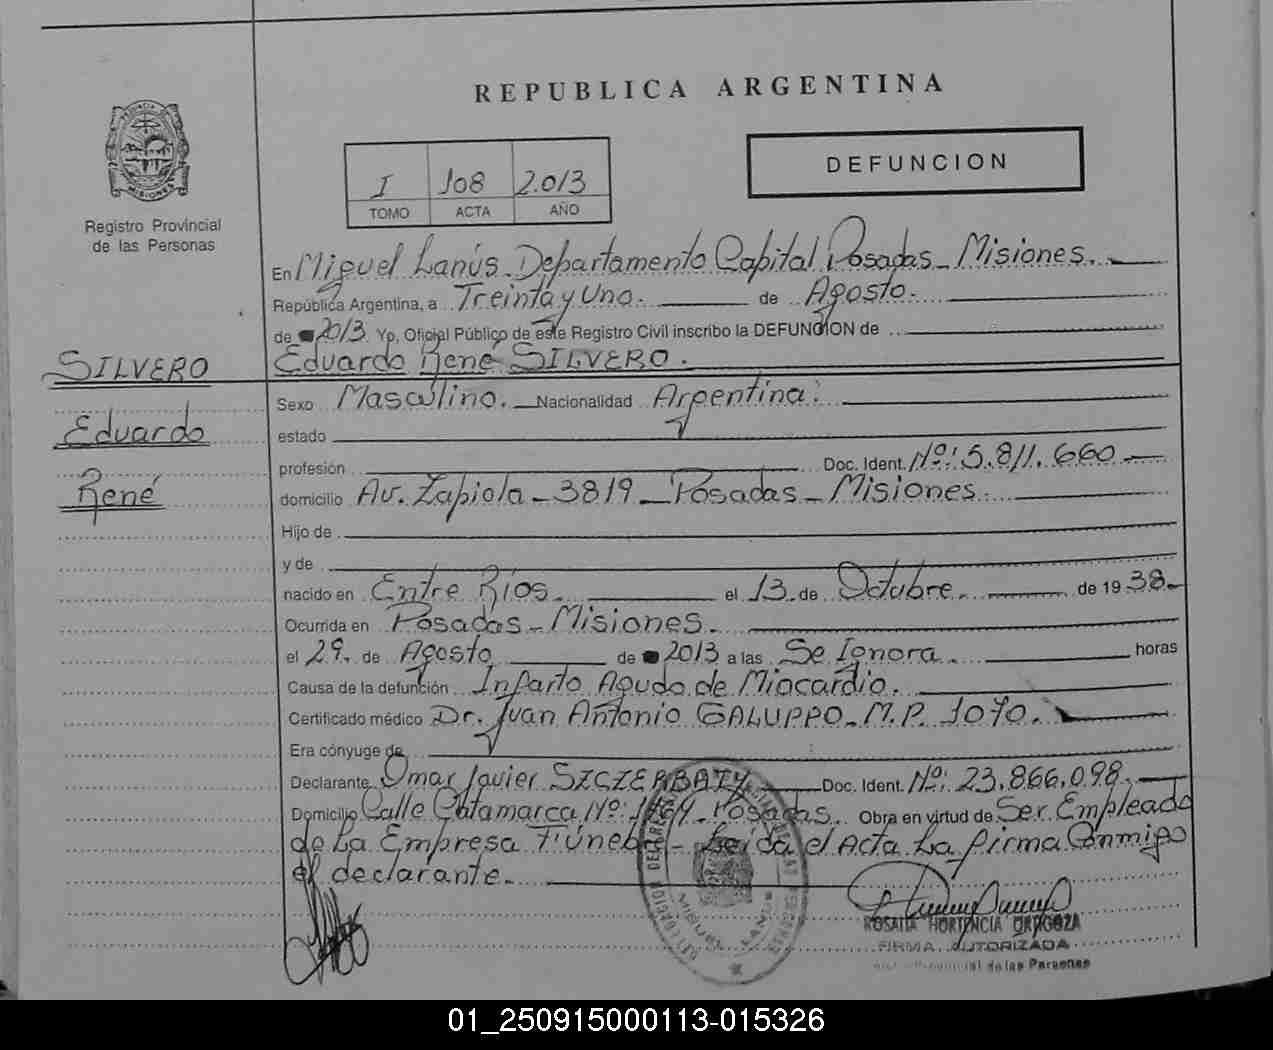 REPUBLICA ARGENTINA
PROVINCIA DE
MISIONES
Registro Provincial
de las Personas
I 108 2.013
TOMO ACTA AÑO
DEFUNCION
En Miguel Lanús. Departamento Capital Posadas - Misiones.
República Argentina, a Treinta y Uno. de Agosto.
de 2013 Yo, Oficial Público de este Registro Civil inscribo la DEFUNCION de
SILVERO
Eduardo René SILVERO.
Sexo Masculino. Nacionalidad Argentina.
Eduardo
estado
profesión Doc. Ident. Nº: 5.811.660
René
domicilio Av. Zapiola - 3819 - Posadas - Misiones.
Hijo de
y de
nacido en Entre Ríos. el 13. de Octubre. de 19 38.
Ocurrida en Posadas - Misiones.
el 29. de Agosto de 2013 a las Se Ignora. horas
Causa de la defunción Infarto Agudo de Miocardio.
Certificado médico Dr. Juan Antonio GALUPPO. M.P. 1070.
Era cónyuge de
Declarante Omar Javier Doc. Ident. Nº: 23.866.098.
Domicilio Calle Catamarca Nº: Posadas. Obra en virtud de Ser Empleado
de La Empresa Fúnebre - Leída el Acta La firma Conmigo
el declarante.
MIGUEL LANUS
ROSALIA HORTENCIA
FIRMA AUTORIZADA
Provincial de las Personas
01_250915000113-015326